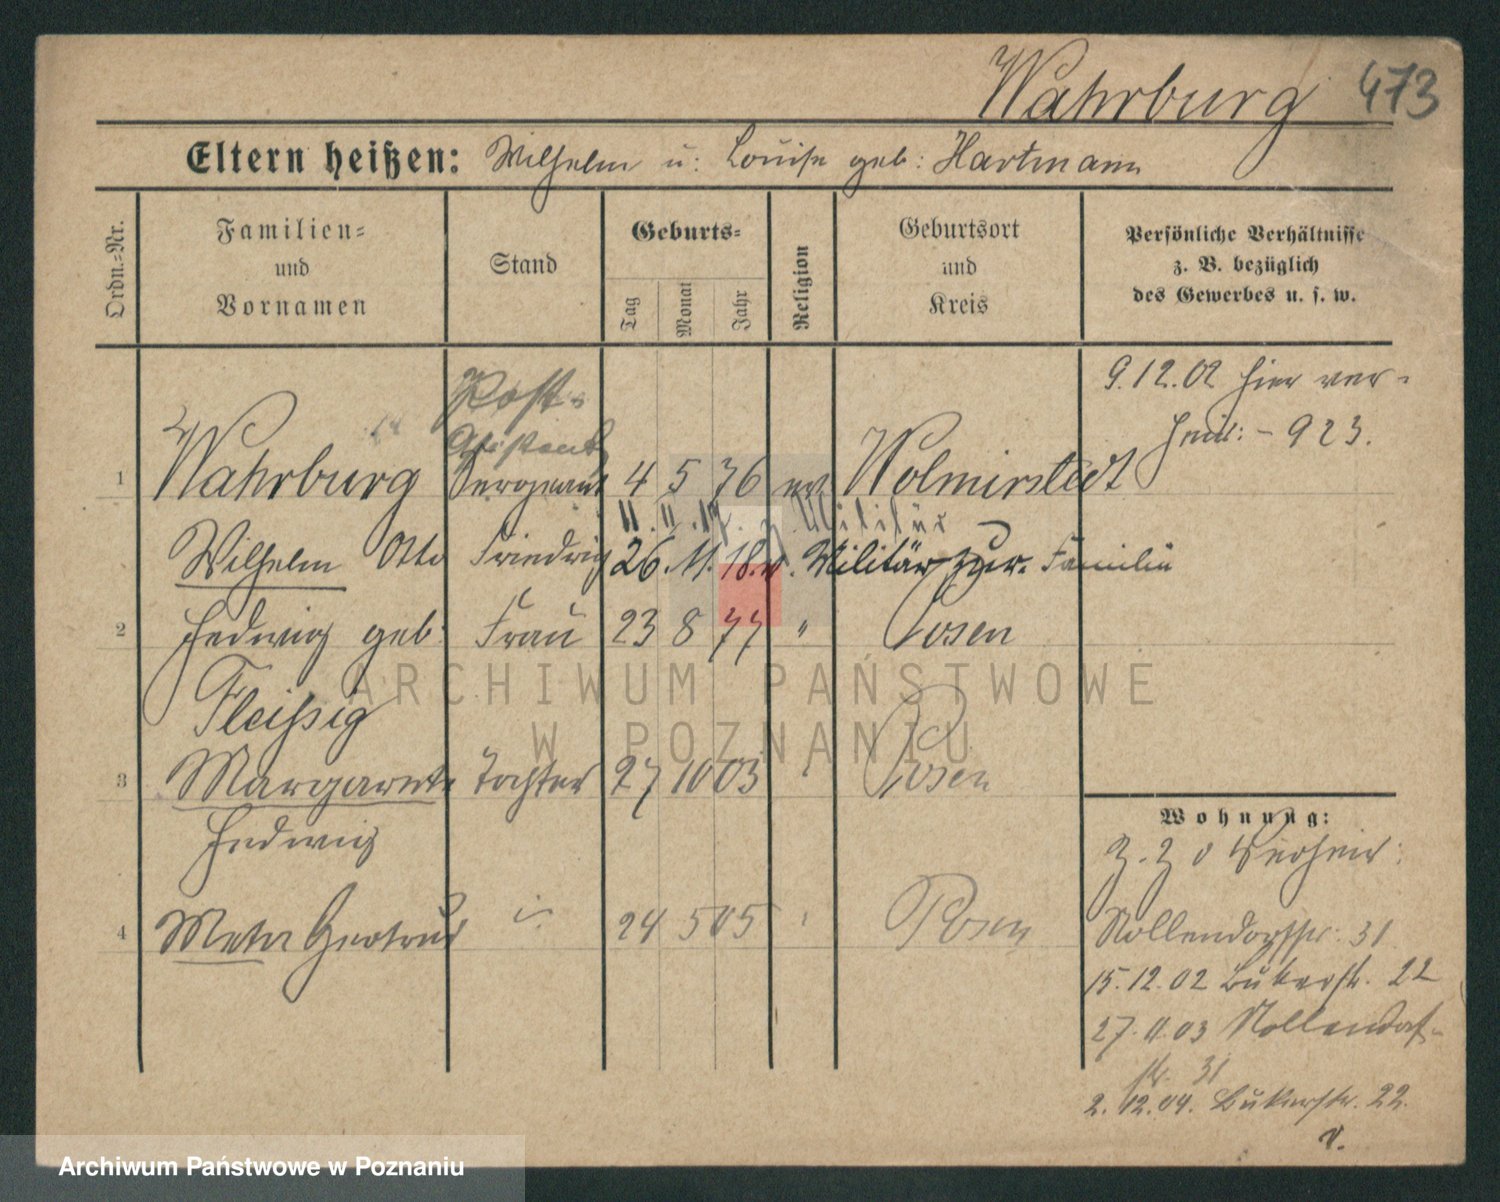 Wahrburg 473
Eltern heißen: Wilhelm u: Louise geb: Hartmann
Ordn.=Nr.
Familien= und Vornamen
Stand
Geburts=
Tag Monat Jahr
Religion
Geburtsort und Kreis
Persönliche Verhältnisse z. B. bezüglich des Gewerbes u. s. w.
9.12.02 hier ver-
heir: - 923.
Post-
Assistent
1 Wahrburg Sergeant 4 5 76 ev. Wolmirstedt
11.11.17. z Militär
Wilhelm Otto Friedrich 26.11.18. v. Militär zur. Familie
2 Hedwig geb: Frau 23 8 77 " Posen
Fleissig
3 Margarete Tochter 27 10 03 Posen
Hedwig
4 Meta Gertrud 24 5 05 Posen
Wohnung:
Nollendorfstr. 31
15.12.02 Bukerstr. 22
27.11.03 Nollendorf-
str. 31
2.12.04. Bukerstr. 22.
v.
ARCHIWUM PAŃSTWOWE
W POZNANIU
Archiwum Państwowe w Poznaniu